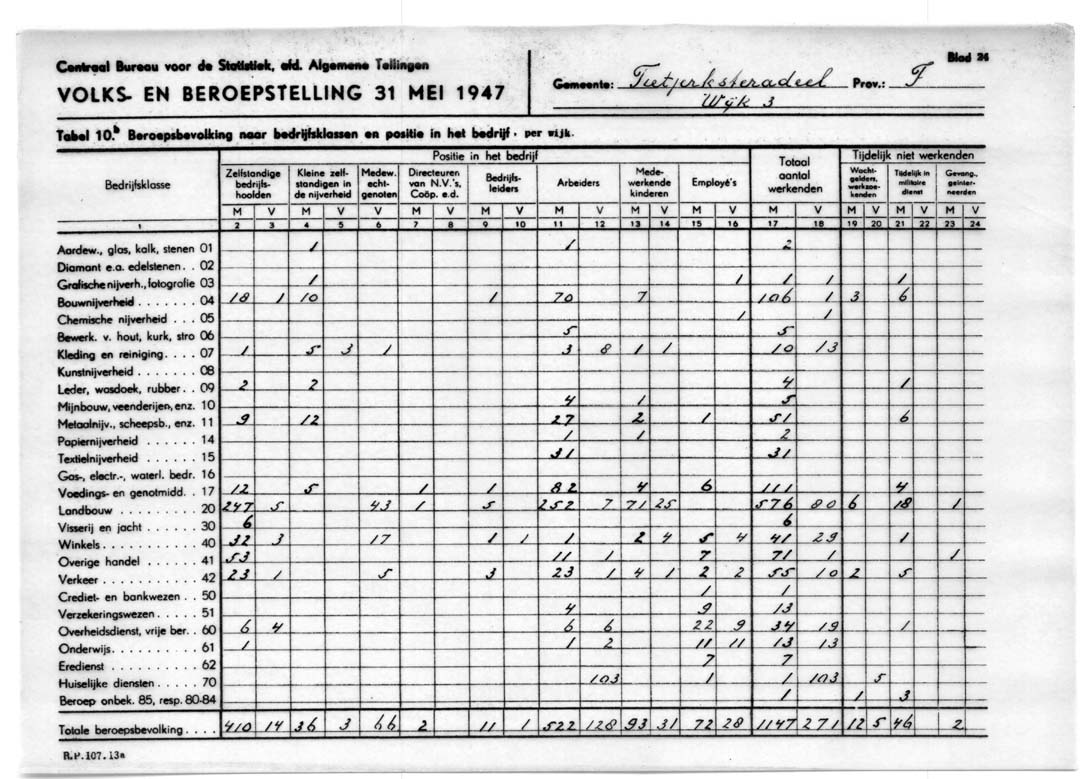 Centraal Bureau voor de Statistiek, afd. Algemene Tellingen
VOLKS- EN BEROEPSTELLING 31 MEI 1947
Gemeente: Tietjerksteradeel Prov.: F
Wijk 3
Blad 24
Tabel 10.b Beroepsbevolking naar bedrijfsklassen en positie in het bedrijf. per wijk.
Bedrijfsklasse Positie in het bedrijf Totaal aantal werkenden Tijdelijk niet werkenden
Zelfstandige bedrijfshoofden Kleine zelfstandigen in de nijverheid Medew. echtgenoten Directeuren van N.V.'s, Coöp. e.d. Bedrijfsleiders Arbeiders Medewerkende kinderen Employé's Wachtgelders, werkzoekenden Tijdelijk in militaire dienst Gevang., geïnterneerden
M V M V V M V M V M V M V M V M V M V M V M V
1 2 3 4 5 6 7 8 9 10 11 12 13 14 15 16 17 18 19 20 21 22 23 24
Aardew., glas, kalk, stenen 01 1 1 2
Diamant e.a. edelstenen . . 02
Grafische nijverh., fotografie 03 1 1 1 1 1
Bouwnijverheid . . . . . . . . 04 18 1 10 1 70 7 106 1 3 6
Chemische nijverheid . . . 05 1 1
Bewerk. v. hout, kurk, stro 06 5 5
Kleding en reiniging . . . . 07 1 5 3 1 3 8 1 1 10 13
Kunstnijverheid . . . . . . . 08
Leder, wasdoek, rubber. . 09 2 2 4 1
Mijnbouw, veenderijen, enz. 10 4 1 5
Metaalnijv., scheepsb., enz. 11 9 12 27 2 1 51 6
Papiernijverheid . . . . . . . 14 1 1 2
Textielnijverheid . . . . . . . 15 31 31
Gas-, electr.-, waterl. bedr. 16
Voedings- en genotmidd. . 17 12 5 1 1 82 4 6 111 4
Landbouw . . . . . . . . . . . 20 247 5 43 1 5 252 7 71 25 576 80 6 18 1
Visserij en jacht . . . . . . . 30 6 6
Winkels . . . . . . . . . . . . . 40 32 3 17 1 1 1 2 4 5 4 41 29 1
Overige handel . . . . . . . . 41 53 11 1 7 71 1 1
Verkeer . . . . . . . . . . . . . 42 23 1 5 3 23 1 4 1 2 2 55 10 2 5
Crediet- en bankwezen . . 50 1 1
Verzekeringswezen . . . . . 51 4 9 13
Overheidsdienst, vrije ber. . 60 6 4 6 6 22 9 34 19 1
Onderwijs . . . . . . . . . . . . 61 1 1 2 11 11 13 13
Eredienst . . . . . . . . . . . . 62 7 7
Huiselijke diensten . . . . . 70 103 1 1 103 5
Beroep onbek. 85, resp. 80-84 1 1 3
Totale beroepsbevolking . . . . 410 14 36 3 66 2 11 1 522 128 93 31 72 28 1147 271 12 5 46 2
R.P.107.13a